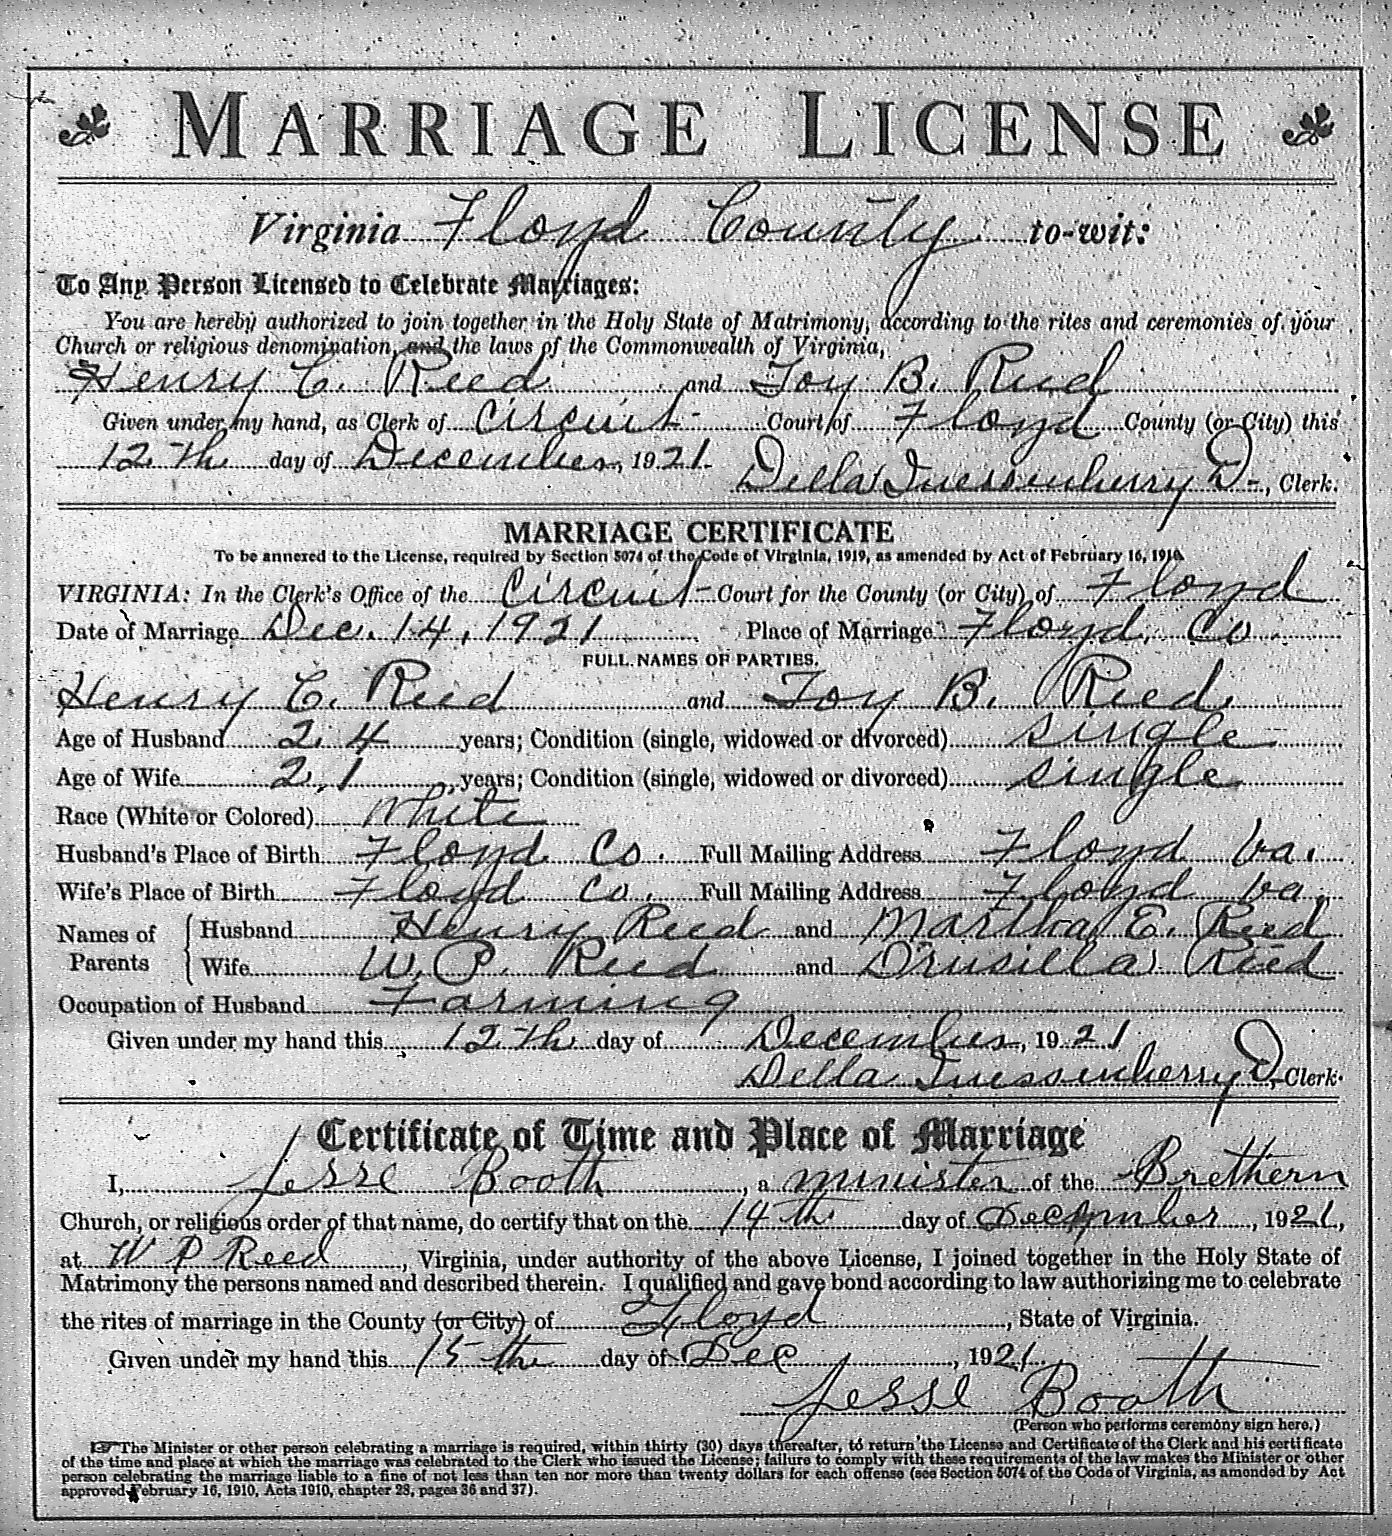 MARRIAGE LICENSE
Virginia Floyd County to-wit:
To Any Person Licensed to Celebrate Marriages:
You are hereby authorized to join together in the Holy State of Matrimony, according to the rites and ceremonies of your
Church or religious denomination, and the laws of the Commonwealth of Virginia,
Henry C. Reed and Toy B. Reed
Given under my hand, as Clerk of Circuit Court of Floyd County (or City) this
12th day of December, 1921. Della Quessenberry D., Clerk.
MARRIAGE CERTIFICATE
To be annexed to the License, required by Section 5074 of the Code of Virginia, 1919, as amended by Act of February 16, 1910.
VIRGINIA: In the Clerk's Office of the Circuit Court for the County (or City) of Floyd
Date of Marriage Dec. 14, 1921 Place of Marriage Floyd Co
FULL NAMES OF PARTIES.
Henry C. Reed and Toy B. Reed.
Age of Husband 24 years; Condition (single, widowed or divorced) single
Age of Wife 21 years; Condition (single, widowed or divorced) single
Race (White or Colored) White
Husband's Place of Birth Floyd Co. Full Mailing Address Floyd Va.
Wife's Place of Birth Floyd Co. Full Mailing Address Floyd Va.
Names of Parents Husband Henry Reed and Martha E. Reed
Wife W. P. Reed and Drusilla Reed
Occupation of Husband Farming
Given under my hand this 12th day of December, 1921
Della Quessenberry D, Clerk.
Certificate of Time and Place of Marriage
I, Jesse Booth, a minister of the Brethern
Church, or religious order of that name, do certify that on the 14th day of December, 1921,
at W P Reed, Virginia, under authority of the above License, I joined together in the Holy State of
Matrimony the persons named and described therein. I qualified and gave bond according to law authorizing me to celebrate
the rites of marriage in the County (or City) of Floyd, State of Virginia.
Given under my hand this 15th day of Dec, 1921.
Jesse Booth
(Person who performs ceremony sign here.)
☞ The Minister or other person celebrating a marriage is required, within thirty (30) days thereafter, to return the License and Certificate of the Clerk and his certificate
of the time and place at which the marriage was celebrated to the Clerk who issued the License; failure to comply with these requirements of the law makes the Minister or other
person celebrating the marriage liable to a fine of not less than ten nor more than twenty dollars for each offense (see Section 5074 of the Code of Virginia, as amended by Act
approved February 16, 1910, Acts 1910, chapter 28, pages 36 and 37).